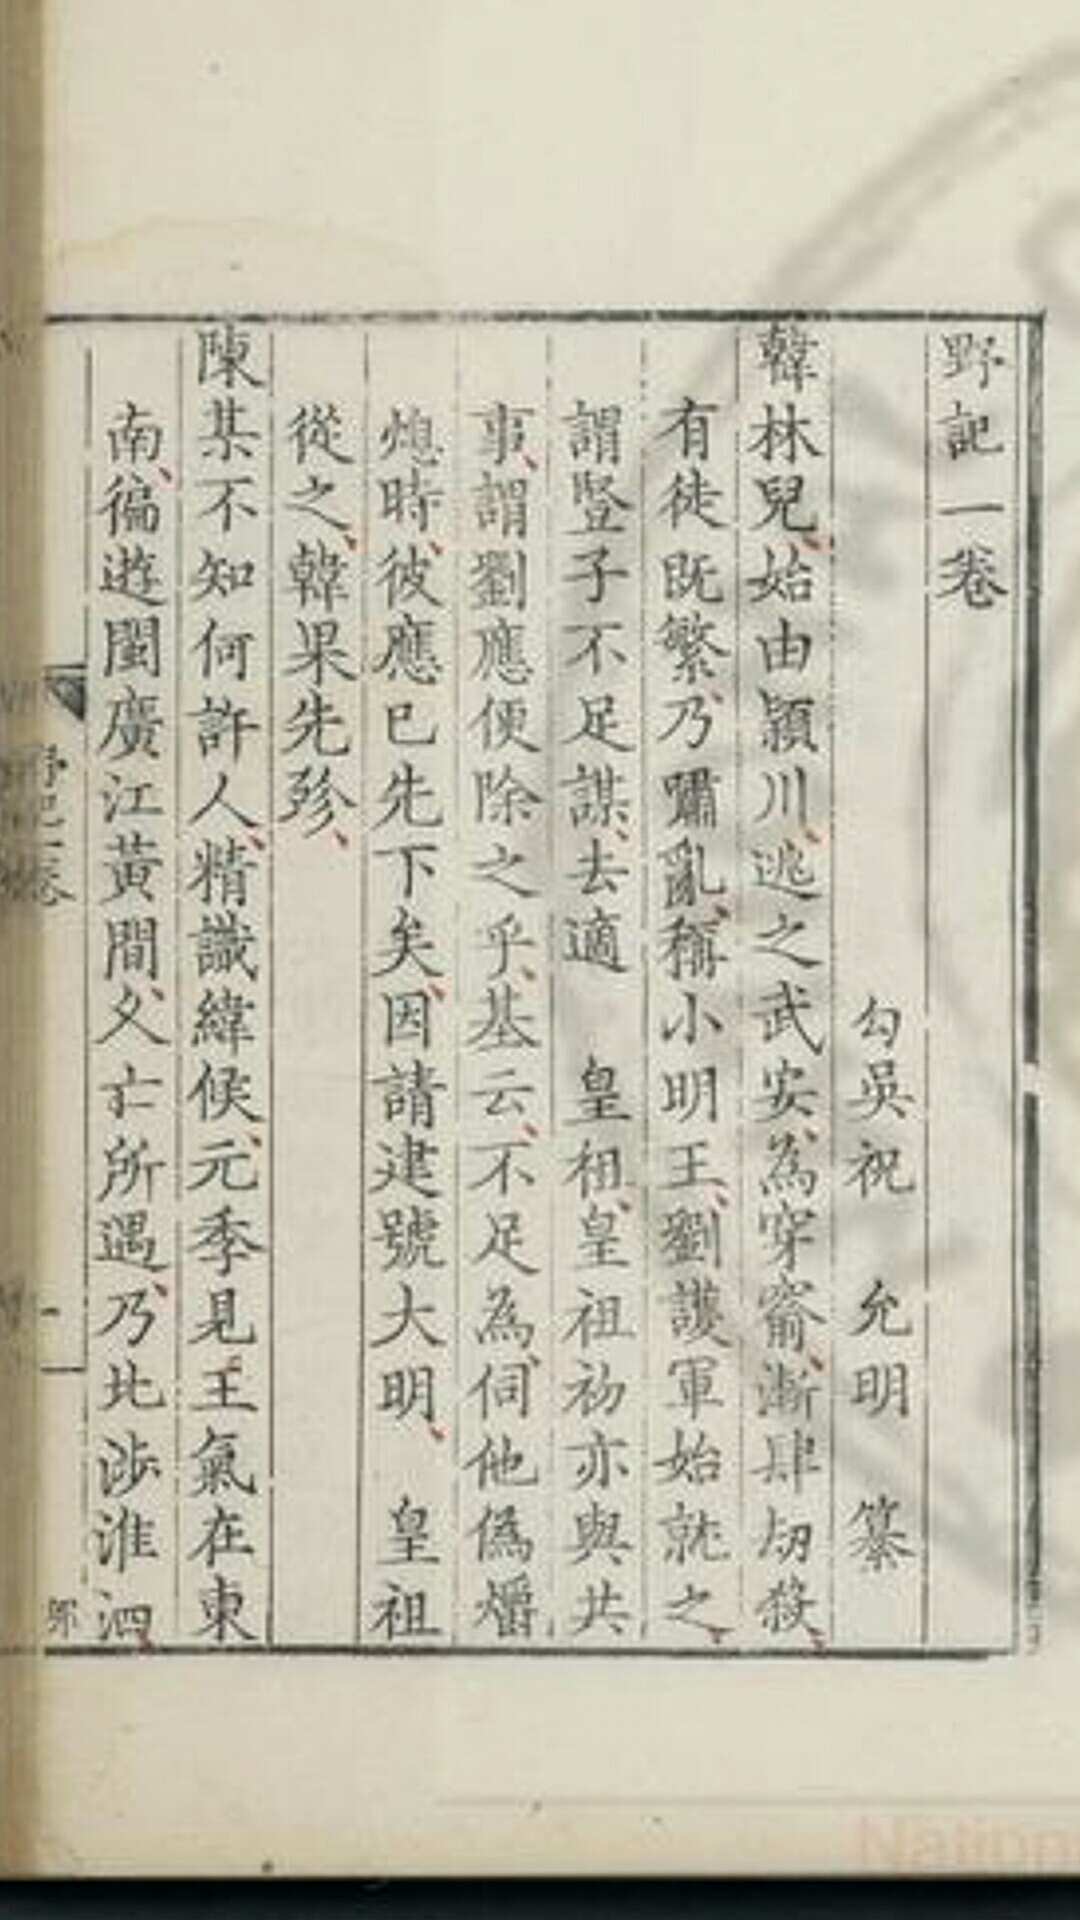 野記一卷
勾吳祝 允明 纂
韓林兒始由潁川逃之武安為穿窬漸肆刧殺
有徒既繁乃嘯亂稱小明王劉護軍始就之
謂豎子不足謀去適 皇祖皇祖初亦與共
事謂劉應便除之乎基云不足為伺他偽爝
熄時彼應已先下矣因請建號大明 皇祖
從之韓果先殄
陳某不知何許人精讖緯候元季見王氣在東
南徧遊閩廣江黃間久亡所遇乃北涉淮泗
野記一卷
一
Nation